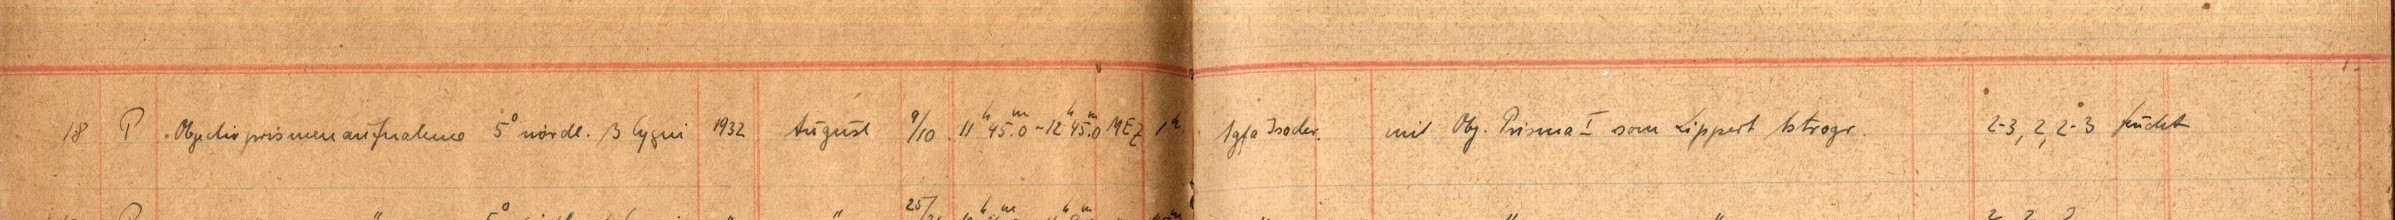 18 P. Objectivprismenaufnahme 5° nördl. β Cygni 1932 August 9/10 11h 45m.0 - 12h 45m.0 MEZ 1h Agfa Isodor. mit Obj. Prisma I vom Lippert Astrogr. 2-3, 2, 2-3
P " 5° " " 25/